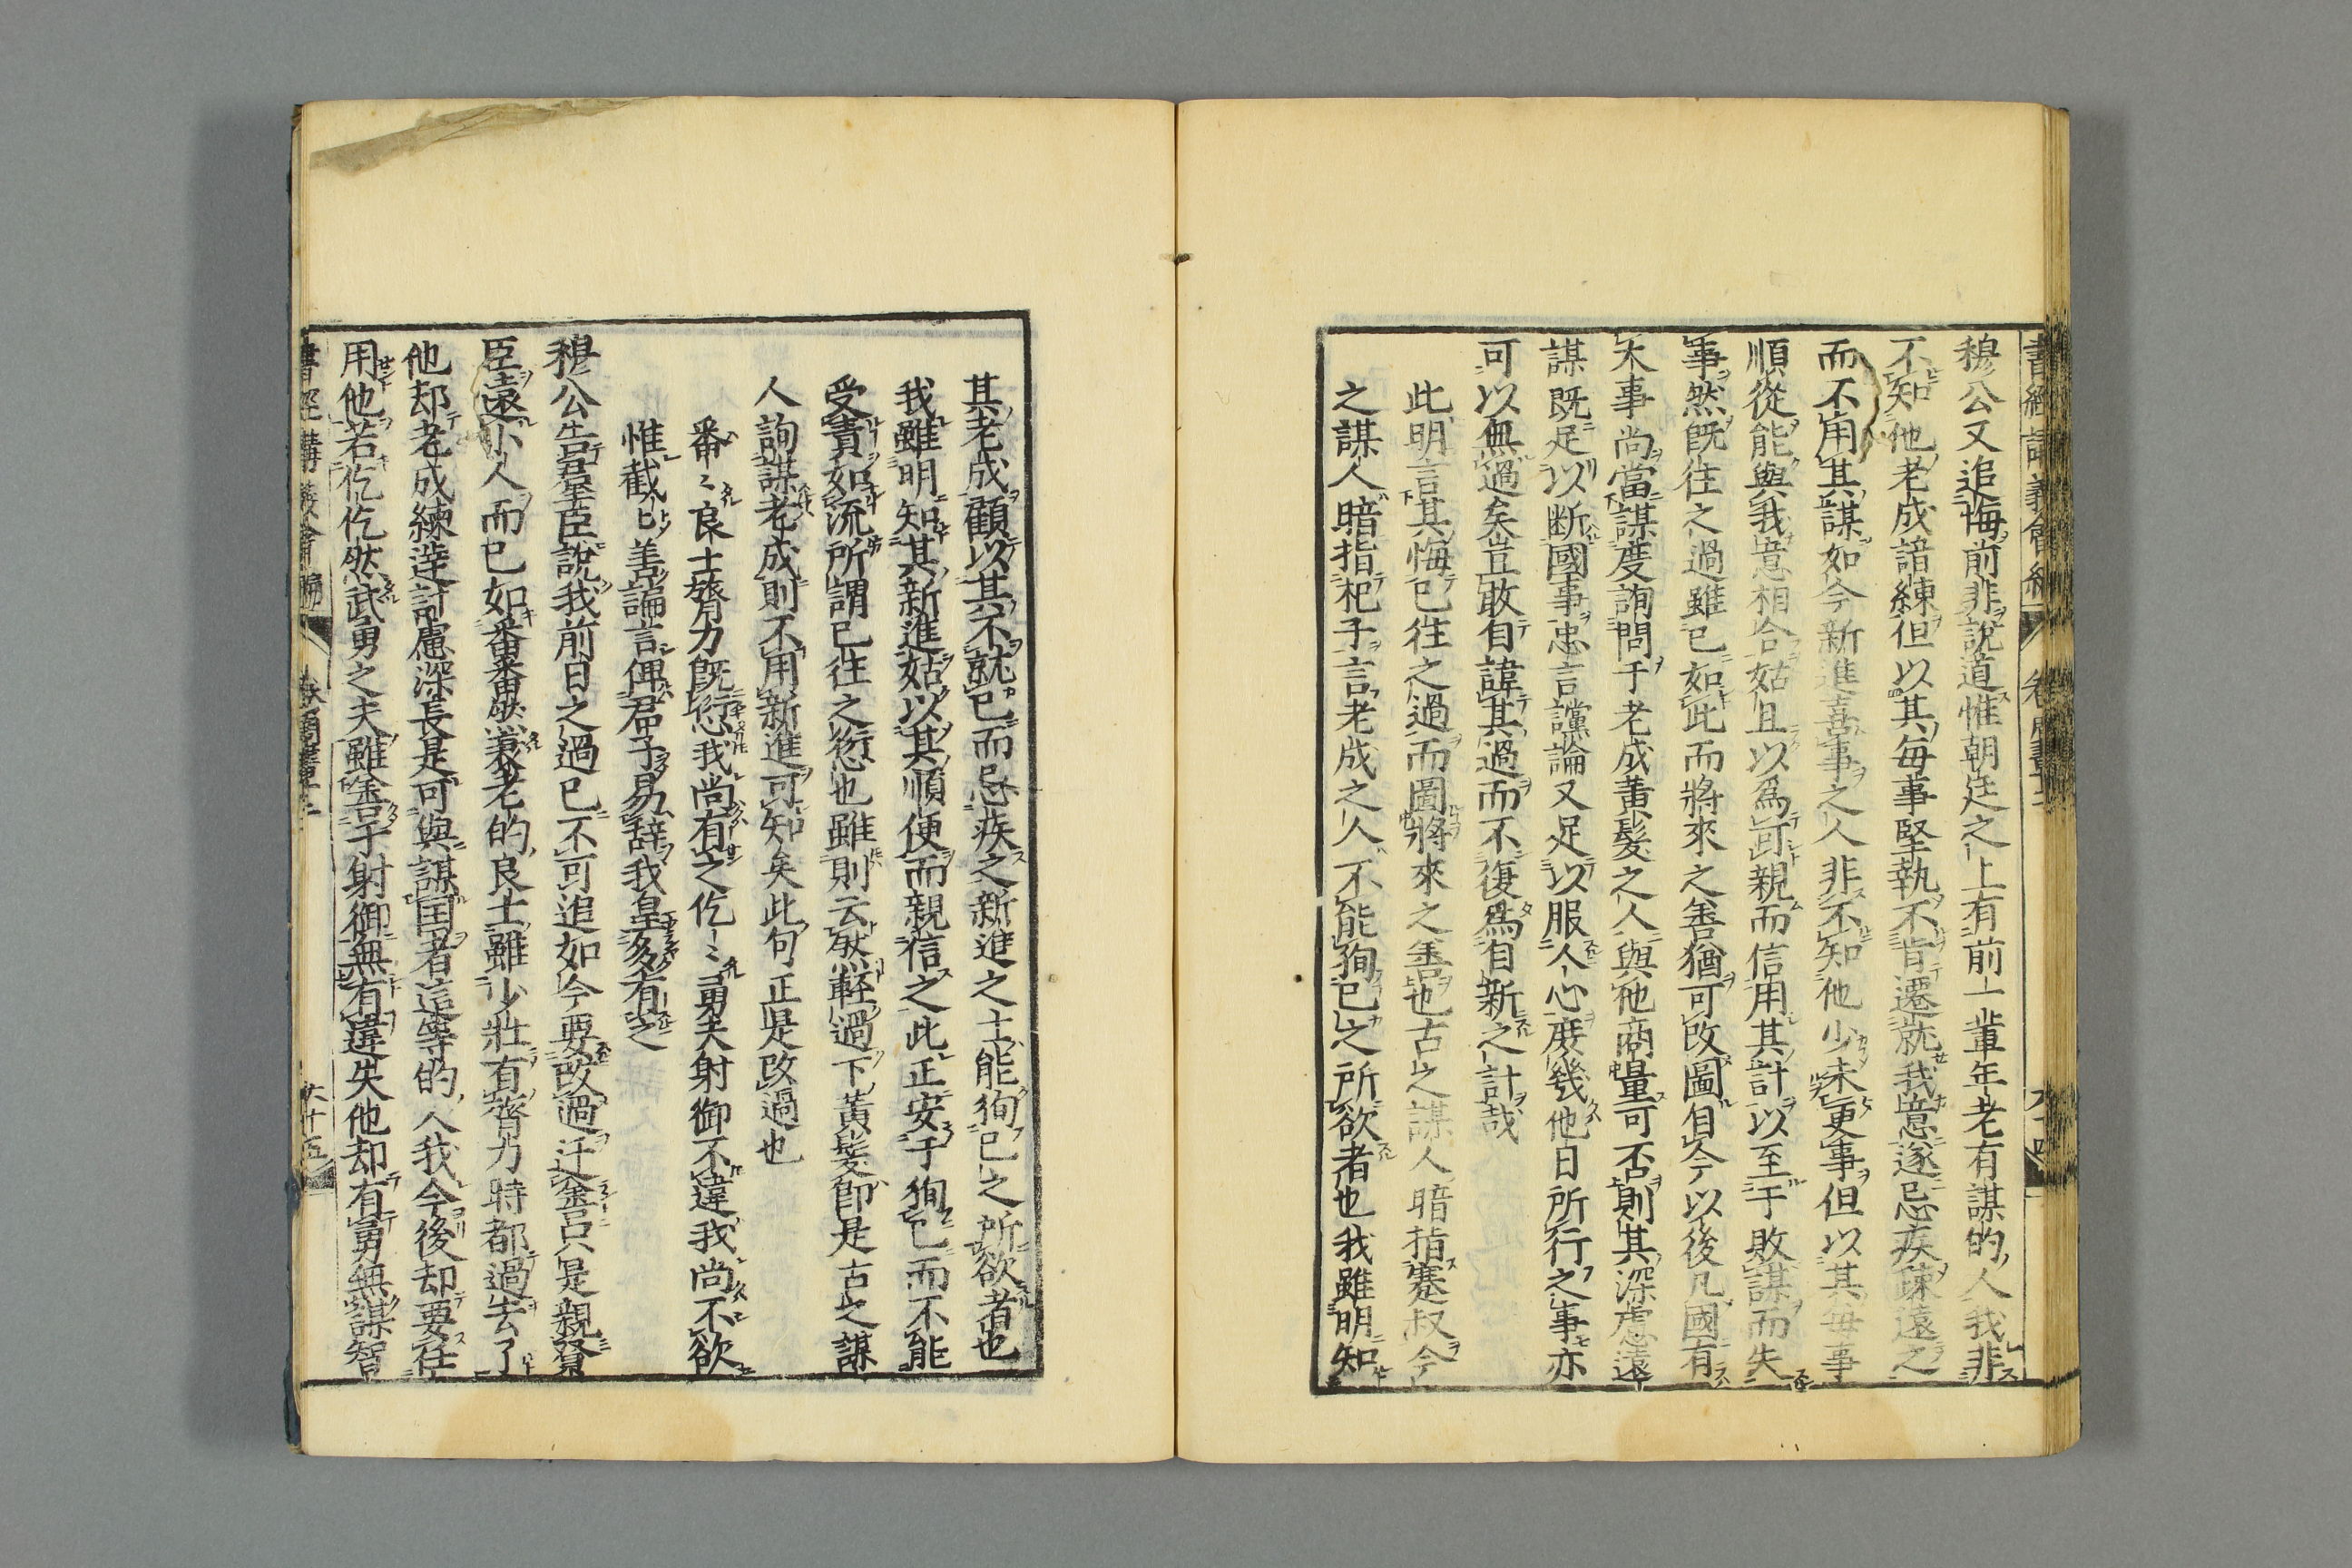 穆公又追悔前非說道惟朝廷之上有前一輩年老有謀的人我非
不知他老成諳練但以其每事堅執不肯遷就我意遂忌疾疎遠之
而不用其謀如今新進喜事之人非不知他少未更事但以其每事
順從能與我意相合姑且以爲可親而信用其計以至于敗謀而失
事然旣往之過雖已如此而將來之善猶可改圖自今以後凡國有
大事尚當謀度詢問于老成黃髮之人與他商量可否則其深慮遠
謀既足以斷國事忠言讜論又足以服人心庶幾他日所行之事亦
可以無過矣豈敢自諱其過而不復爲自新之計哉
此明言其悔已往之過而圖將來之善也古之謀人暗指蹇叔今
之謀人暗指杞子言老成之人不能狥已之所欲者也我雖明知
其老成顧以其不就已而忌疾之新進之士能狥已之所欲者也
我雖明知其新進姑以其順便而親信之此正安于狥已而不能
受責如流所謂已往之愆也雖則云然輕過下黃髮卽是古之謀
人詢謀老成則不用新進可知矣此句正是改過也
番〻良士膂力旣愆我尚有之仡〻勇夫射御不違我尚不欲
惟截〻善諞言俾君子易辭我皇多有之
穆公告羣臣說我前日之過已不可追如今要改過迁善只是親賢
臣遠小人而已如番番然衰老的良士雖少壯有膂力時都過去了
他却老成練達計慮深長是可與謀国者這等的人我今後却要任
用他若仡仡然武勇之夫雖善于射御無有違失他却有勇無謀智
書經講義會編 卷 周書十二 六十五